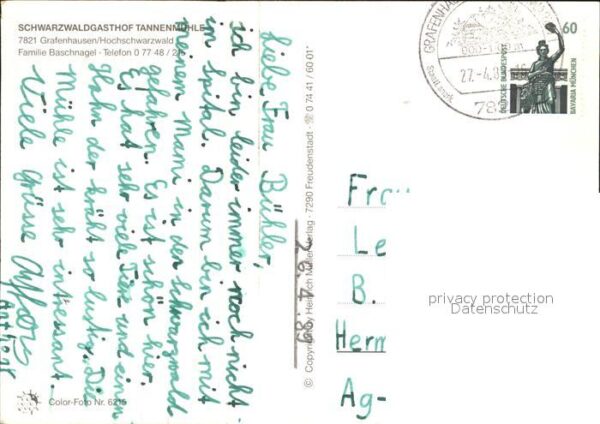 SCHWARZWALDGASTHOF TANNENMÜHLE
7821 Grafenhausen/Hochschwarzwald
Familie Baschnagel · Telefon 0 77 48 / 2
Liebe Frau Bühler,
ich bin leider immer noch nicht
im Spital. Darum bin ich mit
meinem Mami in den Schwarzwald
gefahren. Es ist schön hier.
Es hat sehr viele Tiere und einen
Hahn der kräht so lustig. Die
Mühle ist sehr interessant.
Viele Grüsse
Color-Foto Nr. 6215
© Copyright by Heinrich Müller Verlag · 7290 Freudenstadt · ☏ 0 74 41 / 60 01
26.4.89
GRAFENHAUSEN
27.-4.
78
60
DEUTSCHE BUNDESPOST
BAVARIA MÜNCHEN
Frau
Le
B.
Herm
Ag-
privacy protection
Datenschutz